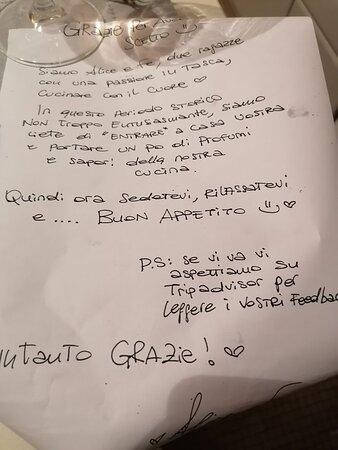 GRAZIE per Av
SCELTO
Siamo Alice e Fe, due ragazze
con una passione in tasca,
cucinare con il cuore ♡
In questo periodo storico
NON TROPPO ENTUSIASMANTE, SIAMO
liete di "ENTRARE" A CASA VOSTRA
E PORTARE UN PO DI PROFUMI
E sapori della nostra
cucina.
Quindi ora sedetevi, RILASSATEVI
e .... BUON APPETITO ♡
P.S: se vi va vi
aspettiamo su
Tripadvisor per
leggere i vostri Feedba
intanto GRAZIE! ♡